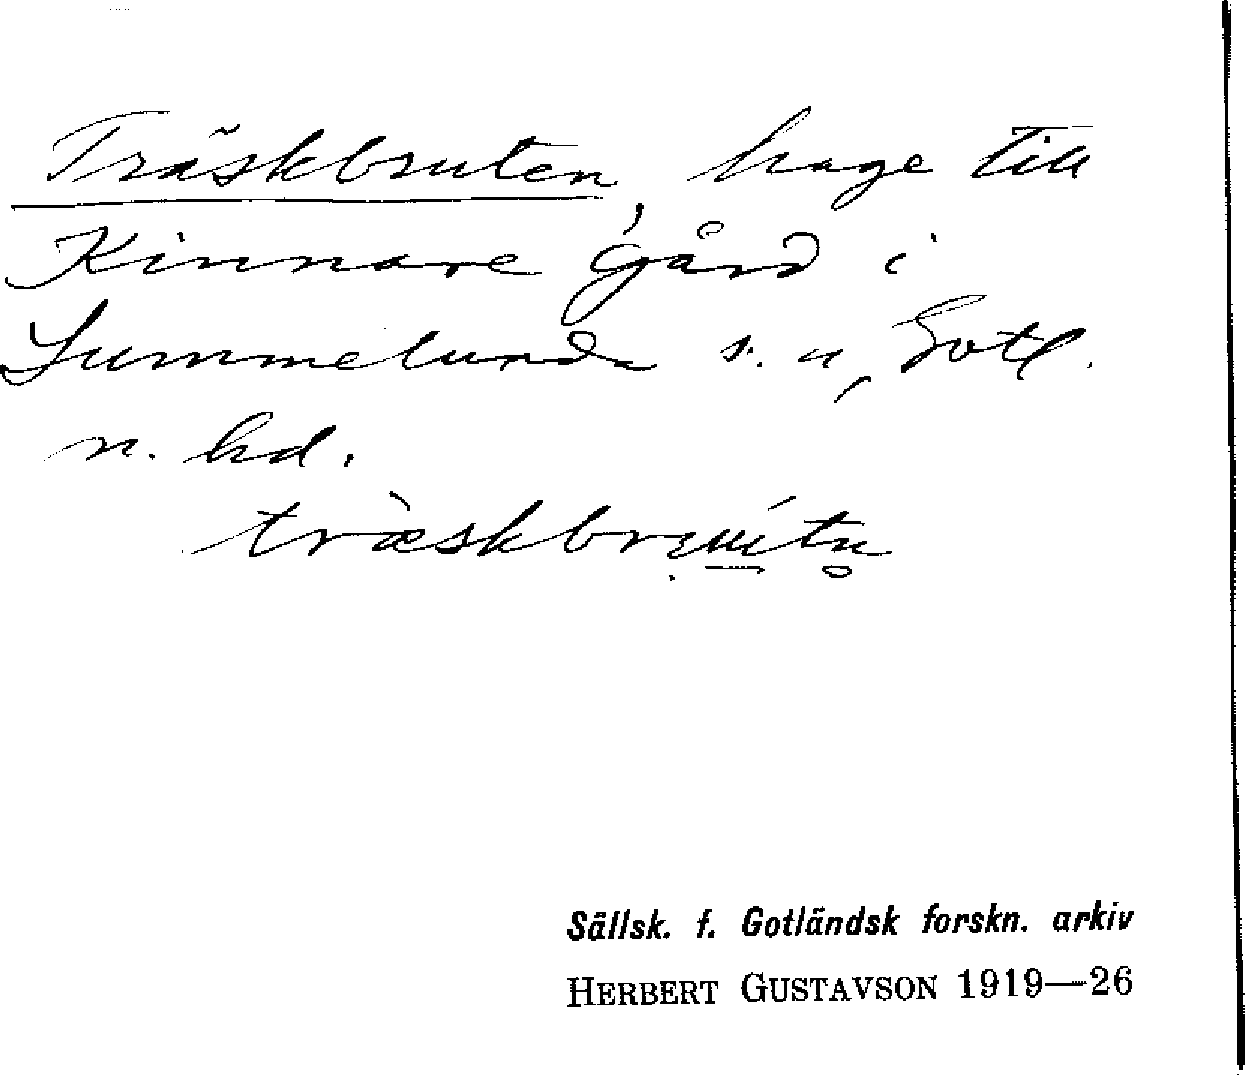 Träskbruten, hage till
Kinnare gård i
Lummelunda s.n, Gotl.
n. hd.
Sällsk. f. Gotländsk forskn. arkiv
HERBERT GUSTAVSON 1919—26